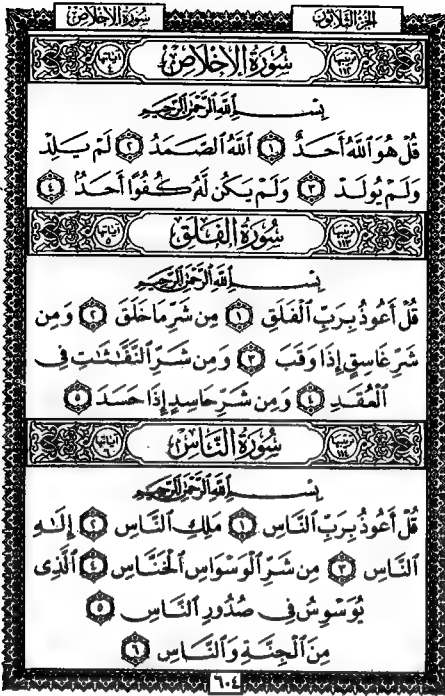 سُورَةُ الإِخْلَاصِ
الجُزْءُ الثَّلَاثُونَ
ترتيبها ١١٢ سُورَةُ الإِخْلَاصِ آياتها ٤
بِسْمِ اللَّهِ الرَّحْمَٰنِ الرَّحِيمِ
قُلْ هُوَ اللَّهُ أَحَدٌ ١ اللَّهُ الصَّمَدُ ٢ لَمْ يَلِدْ
وَلَمْ يُولَدْ ٣ وَلَمْ يَكُن لَّهُ كُفُوًا أَحَدٌ ٤
ترتيبها ١١٣ سُورَةُ الفَلَقِ آياتها ٥
بِسْمِ اللَّهِ الرَّحْمَٰنِ الرَّحِيمِ
قُلْ أَعُوذُ بِرَبِّ الْفَلَقِ ١ مِن شَرِّ مَا خَلَقَ ٢ وَمِن
شَرِّ غَاسِقٍ إِذَا وَقَبَ ٣ وَمِن شَرِّ النَّفَّٰثَٰتِ فِى
الْعُقَدِ ٤ وَمِن شَرِّ حَاسِدٍ إِذَا حَسَدَ ٥
ترتيبها ١١٤ سُورَةُ النَّاسِ آياتها ٦
بِسْمِ اللَّهِ الرَّحْمَٰنِ الرَّحِيمِ
قُلْ أَعُوذُ بِرَبِّ النَّاسِ ١ مَلِكِ النَّاسِ ٢ إِلَٰهِ
النَّاسِ ٣ مِن شَرِّ الْوَسْوَاسِ الْخَنَّاسِ ٤ الَّذِى
يُوَسْوِسُ فِى صُدُورِ النَّاسِ ٥
مِنَ الْجِنَّةِ وَالنَّاسِ ٦
٦٠٤